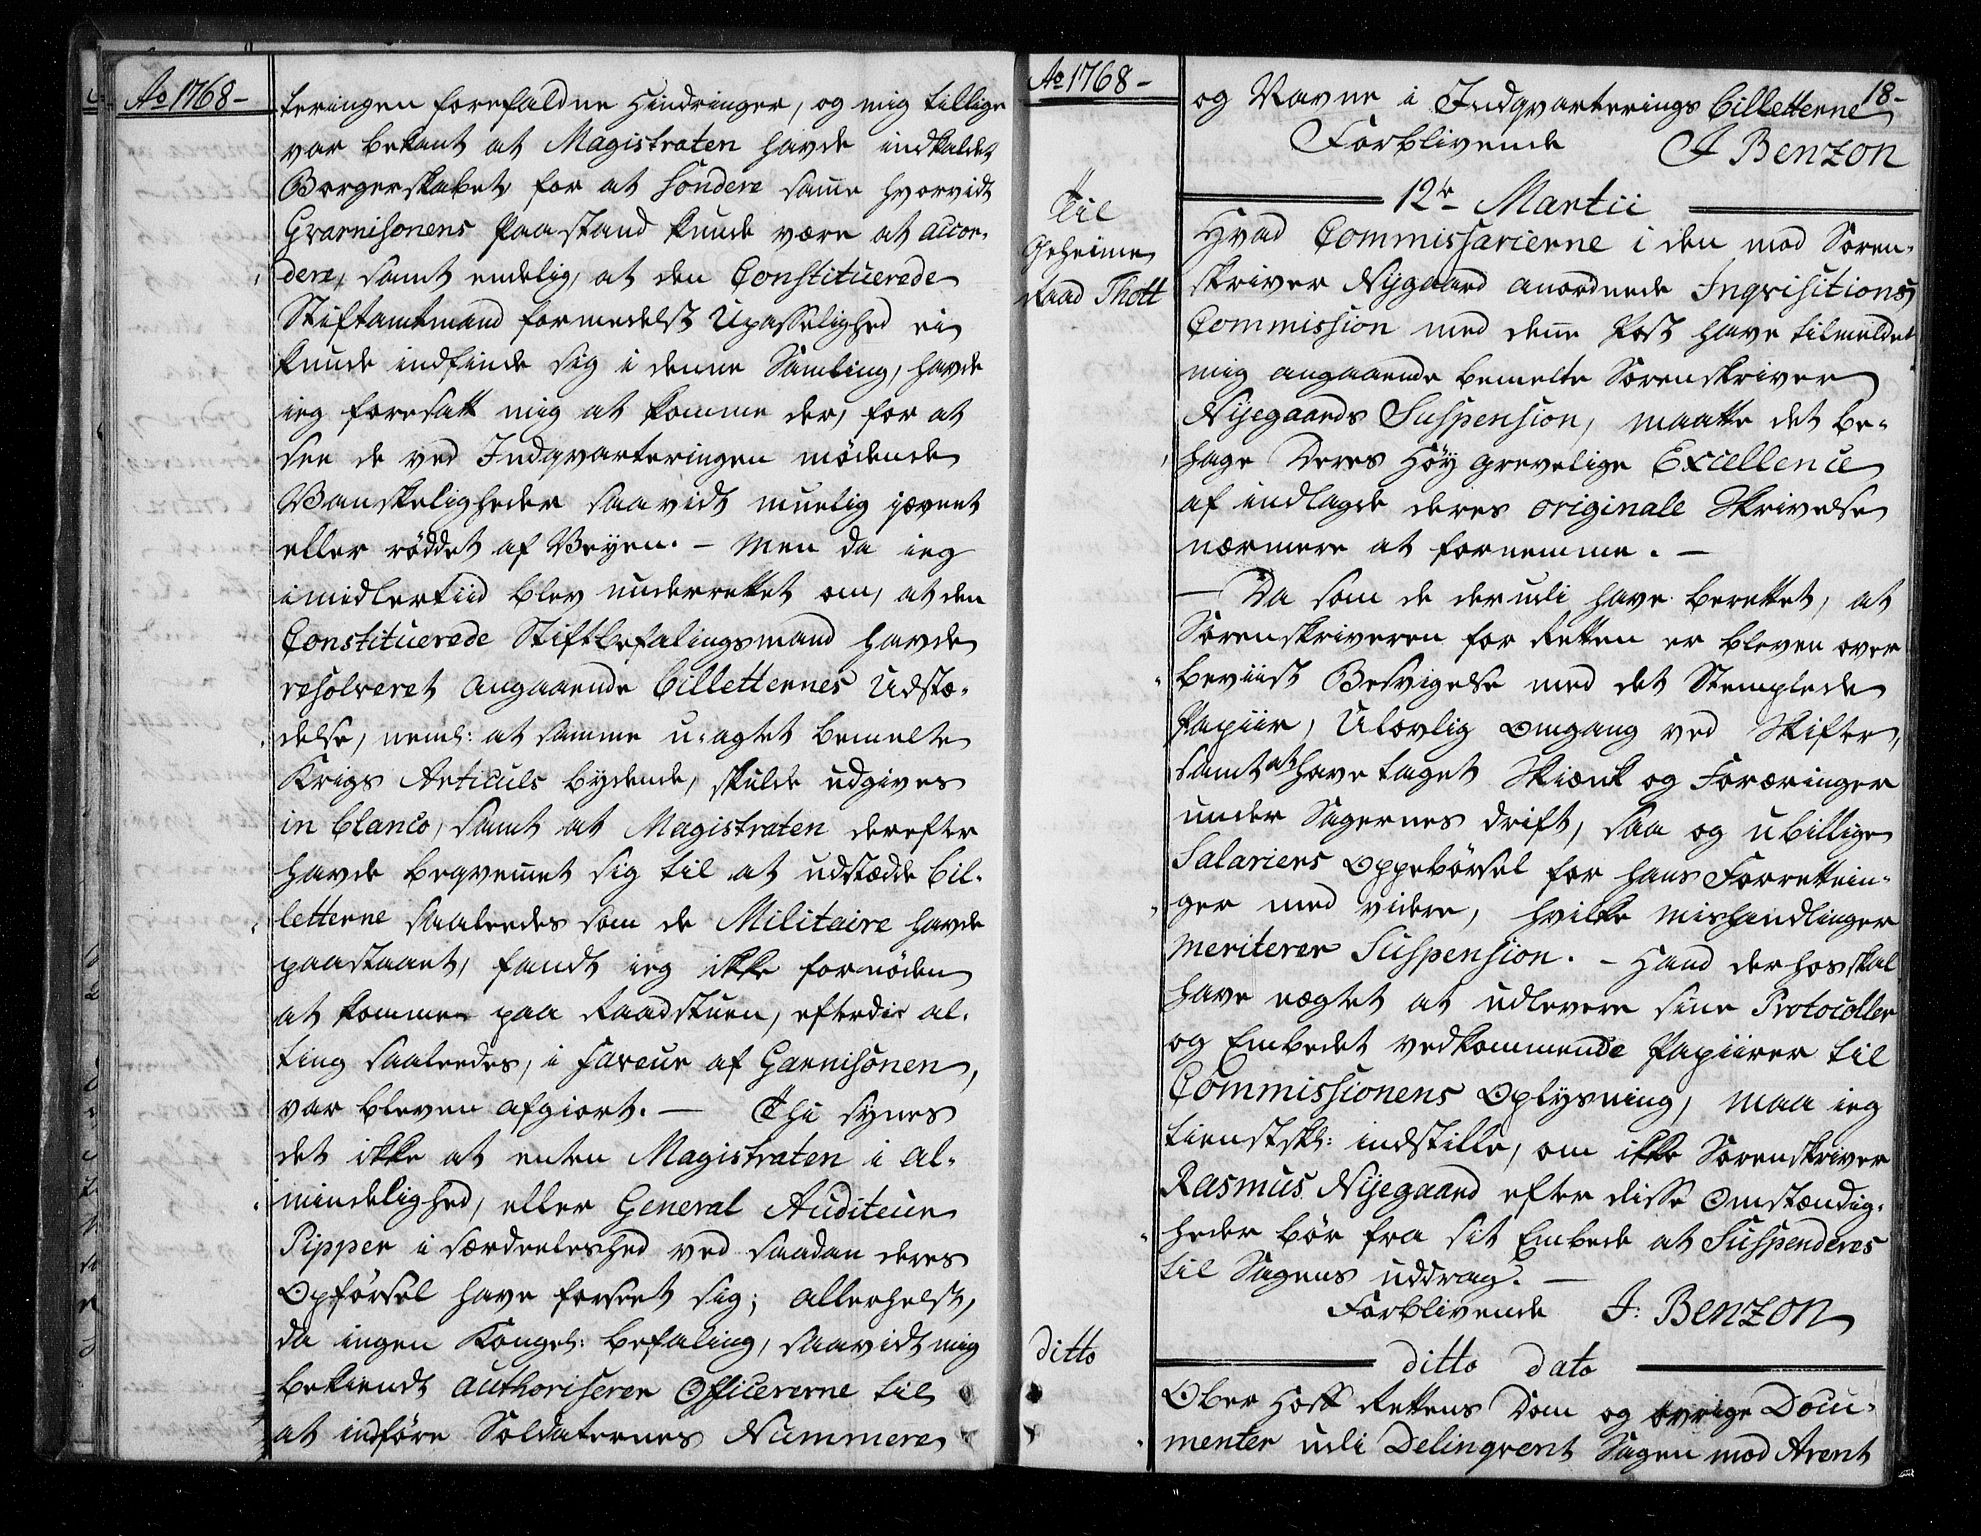 Ao 1768-
teringen forefaldne Hindringer, og mig tillige
var bekant at Magistraten havde indkaldet
Borgerskabet for at Sondere samme hvorvidt
Gvarnisonens Paastand kunde være at accor-
dere, samt endelig, at den Constituerede
Stiftamtmand formedelst Upasselighed ei
kunde indfinde sig i denne Samling, havde
ieg foresatt mig at komme der, for at
see de ved Indqvarteringen mødende
Vanskeligheder saavidt muelig jævnet
eller röddet af Veyen. - Men da ieg
imidlertiid blev underrettet om, at den
Constituerede Stiftbefalingsmand havde
resolveret angaaende Billetternes Udstæ-
delse, neml: at samme u-agtet bemelte
Krigs Articuls bydende, skulde udgives
in blanco, samt at Magistraten derefter
havde beqvemmet sig til at udstædde Bil-
letterne saaledes som de Militaire havde
paastaaet, fandt ieg ikke fornöden
at komme paa Raadstuen, efterdi al-
ting saaledes, i faveur af Garnisonen,
var bleven afgiort. - Thi synes
det ikke at enten Magistraten i al-
mindelighed, eller General Auditeur
Pipper i særdeeleshed ved saadan deres
Opförsel have forseet sig; allerhelst,
da ingen Kongel: befaling, saavidt mig
bekiendt authoriserer Officererne til
at indføre Soldaternes Nummere
Ao 1768-
18-
og Navne i Indqvarterings Billetterne
Forblivende J Benzon
12te Martii
Til
Geheime
Raad Thott
Hvad Commissarierne i den mod Soren-
skriver Nygaard anordnede Inqvisitions
Commission med denne Post have tilmeldet
mig angaaende bemelte Sorenskriver
Nyegaards Suspension, maatte det be-
hage Deres Höy grevelige Excellence
af indlagde deres originale Skrivelse
nærmere at fornemme. -
- Da som de derudi have berettet, at
Sorenskriveren for Retten er bleven over
beviist Besvigelse med det Stemplede
Papiir, Ulovlig Omgang ved Skifter,
samt at have taget Skiænk og Foræringer
under Sagernes drift, saa og ubillige
Salariers Oppebörsel for hans Forrettnin-
ger med videre, hvilke mishandlinger
meriterer Suspension. - Hand derhos skal
have nægtet at udlevere sine Protocoller
og Embedet vedkommende Papiirer til
Commissionens Oplysning, maa ieg
tienstskl: indstille, om ikke Sorenskriver
Rasmus Nyegaard efter disse Omstændig-
heder bör fra sit Embede at Suspenderes
til Sagens uddrag. -
Forblivende J: Benzon
ditto
ditto dato
Ober Hoff Rettens Dom og øvrige Docu-
menter udi Delinqvent Sagen mod Arent